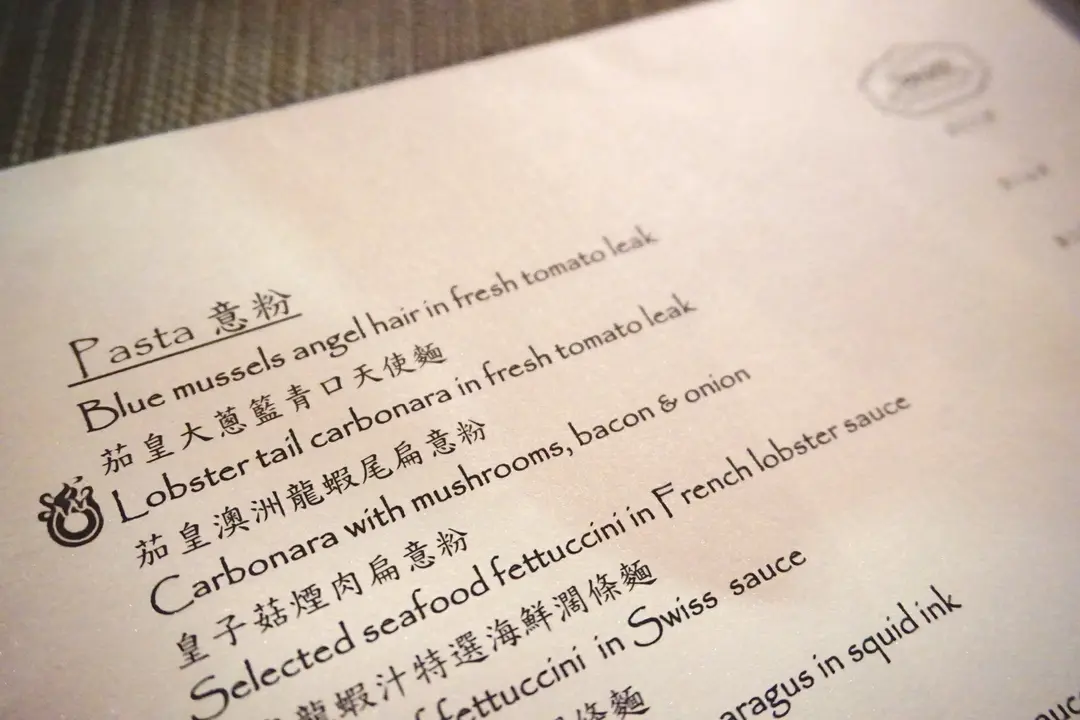 Pasta 意粉
Blue mussels angel hair in fresh tomato leak
茄皇大蔥籃青口天使麵
Lobster tail carbonara in fresh tomato leak
茄皇澳洲龍蝦尾扁意粉
Carbonara with mushrooms, bacon & onion
皇子菇煙肉扁意粉
Selected seafood fettuccini in French lobster sauce
龍蝦汁特選海鮮濶條麵
fettuccini in Swiss sauce
條麵
in squid ink